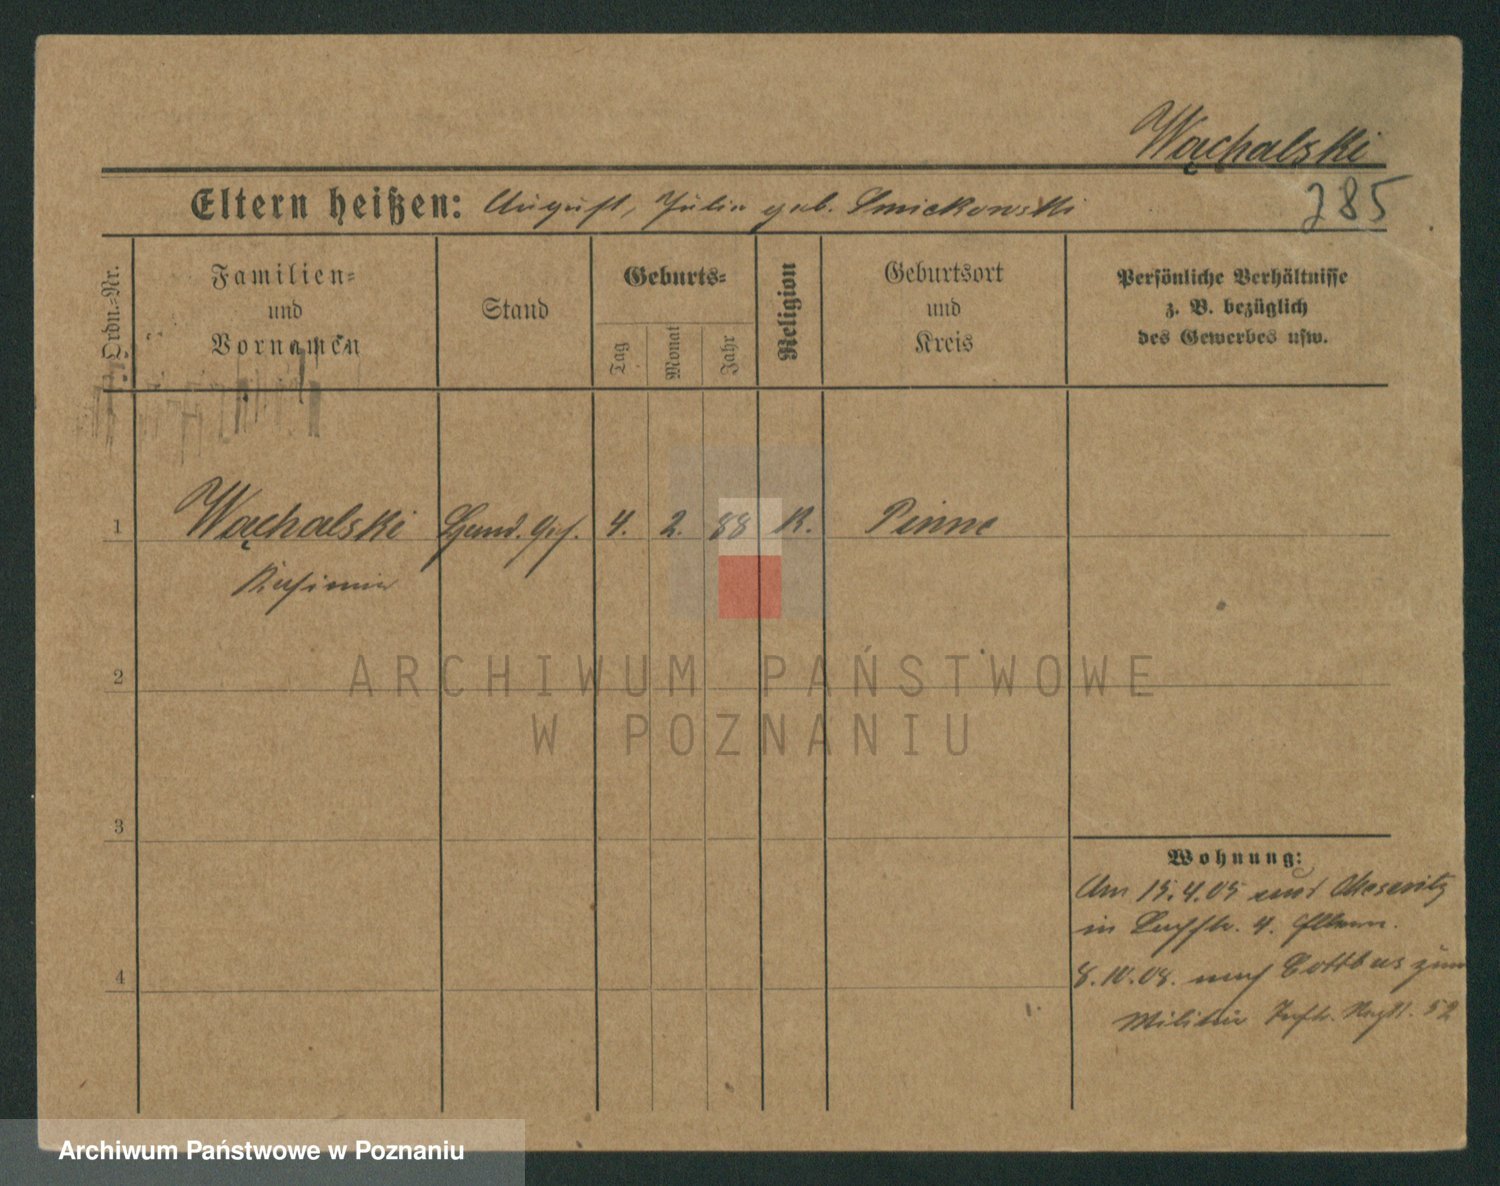 Wąchalski
Eltern heißen: August, Julia geb. Smiekowski
285
Ordn.-Nr.
Familien-
und
Vornamen
Stand
Geburts-
Tag
Monat
Jahr
Religion
Geburtsort
und
Kreis
Persönliche Verhältnisse
z. B. bezüglich
des Gewerbes usw.
1 Wąchalski Hand. Geh. 4. 2. 88 K. Pinne
Kasimir
2
3
4
Wohnung:
Am 15.4.05 Meseritz
in 4. Eltern.
8.10.08. nach Cottbus zum
Militär Inftr. Regt. 52
ARCHIWUM PAŃSTWOWE
W POZNANIU
Archiwum Państwowe w Poznaniu